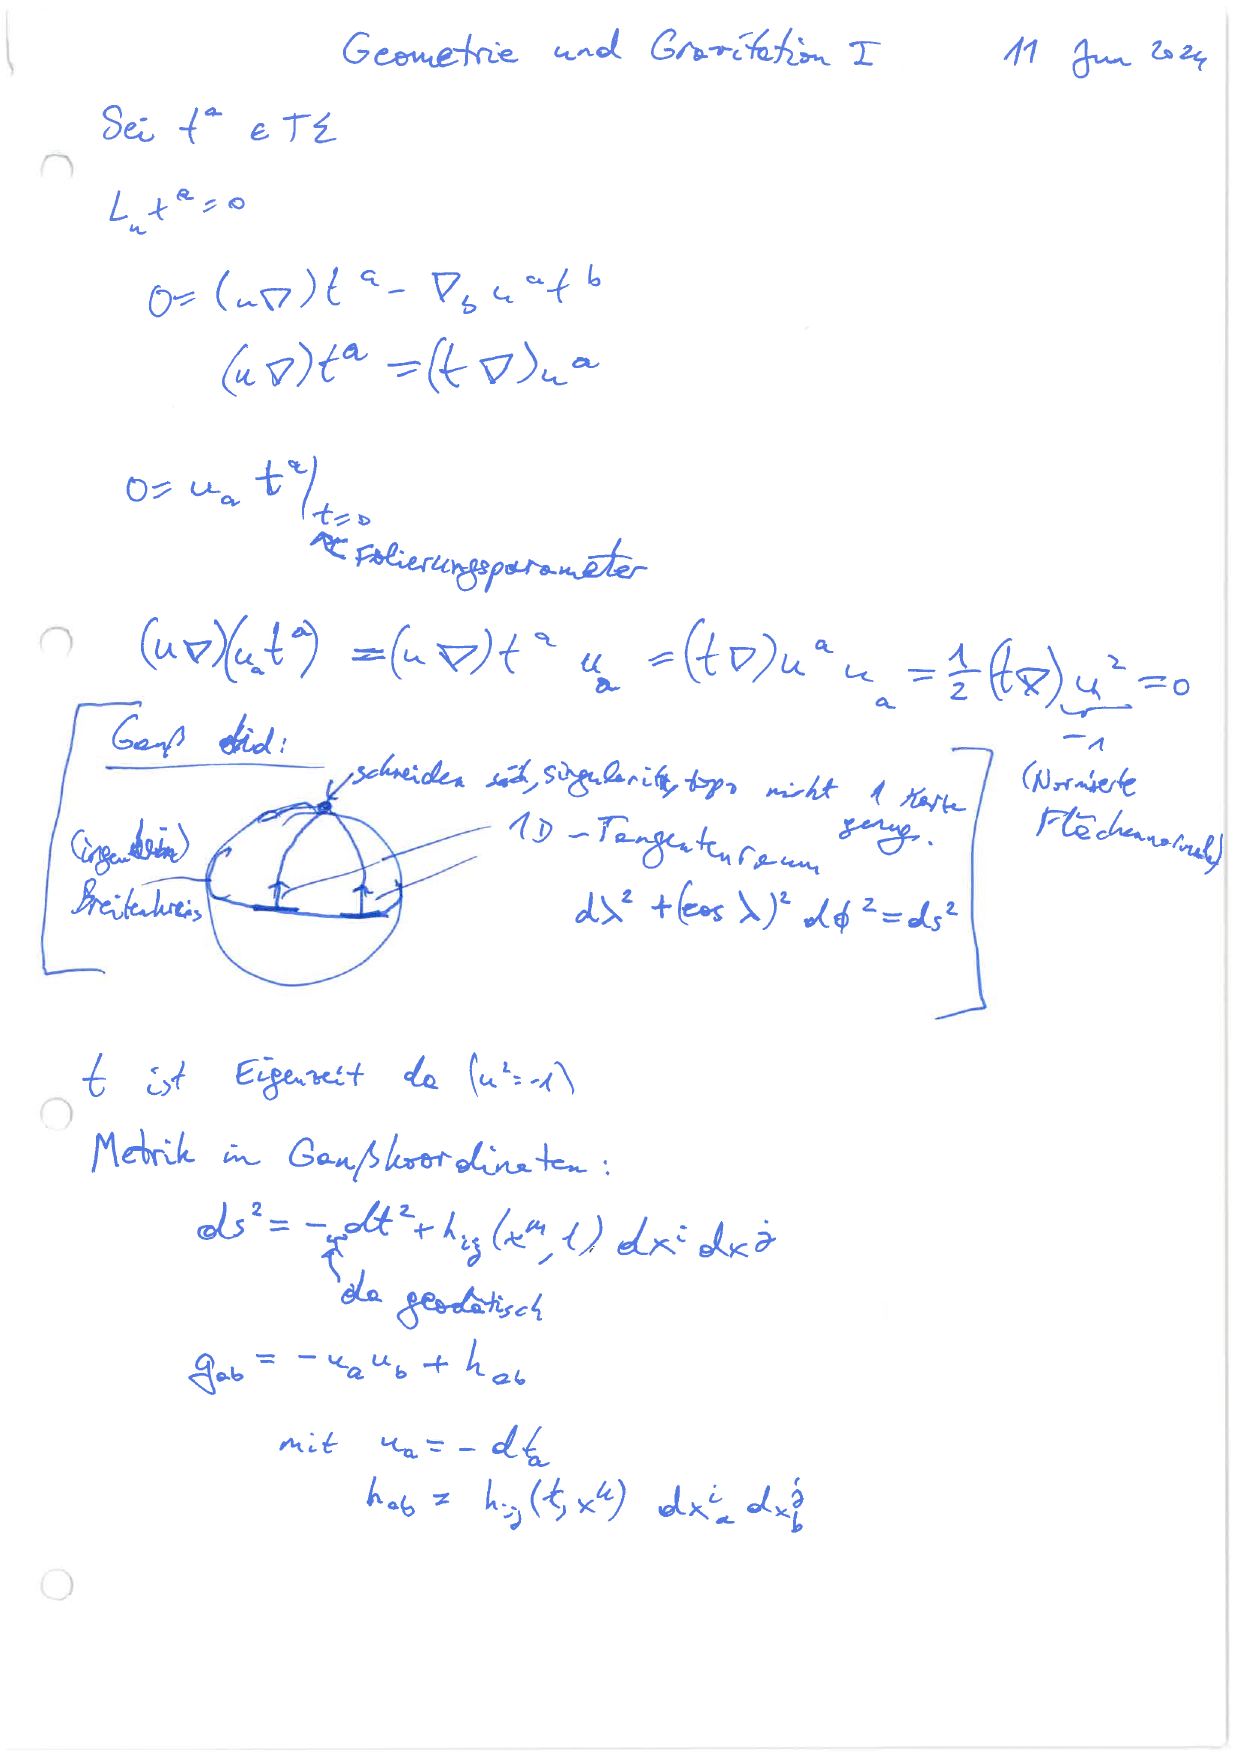 Geometrie und Gravitation I 11 Jun 2024
Sei t^a ∈ TΣ
L_u t^a = 0
0 = (u∇)t^a - ∇_b u^a t^b
(u∇)t^a = (t∇)u^a
0 = u_a t^a|_{t=0}
Folierungsparameter
(u∇)(u_a t^a) = (u∇)t^a u_a = (t∇)u^a u_a = 1/2 (t∇) u^2 = 0
-1
(Normierte
Flächennormale)
Gauß
schneiden sich, Singularität, topo nicht 1 Karte
genug.
(irgendein)
Breitenkreis
1D - Tangentenraum
dλ^2 + (cos λ)^2 dφ^2 = ds^2
t ist Eigenzeit da (u^2=-1)
Metrik in Gaußkoordinaten:
ds^2 = - dt^2 + h_{ij}(x^m, t) dx^i dx^j
da geodätisch
g_{ab} = - u_a u_b + h_{ab}
mit u_a = - dt_a
h_{ab} = h_{ij}(t, x^k) dx^i_a dx^j_b